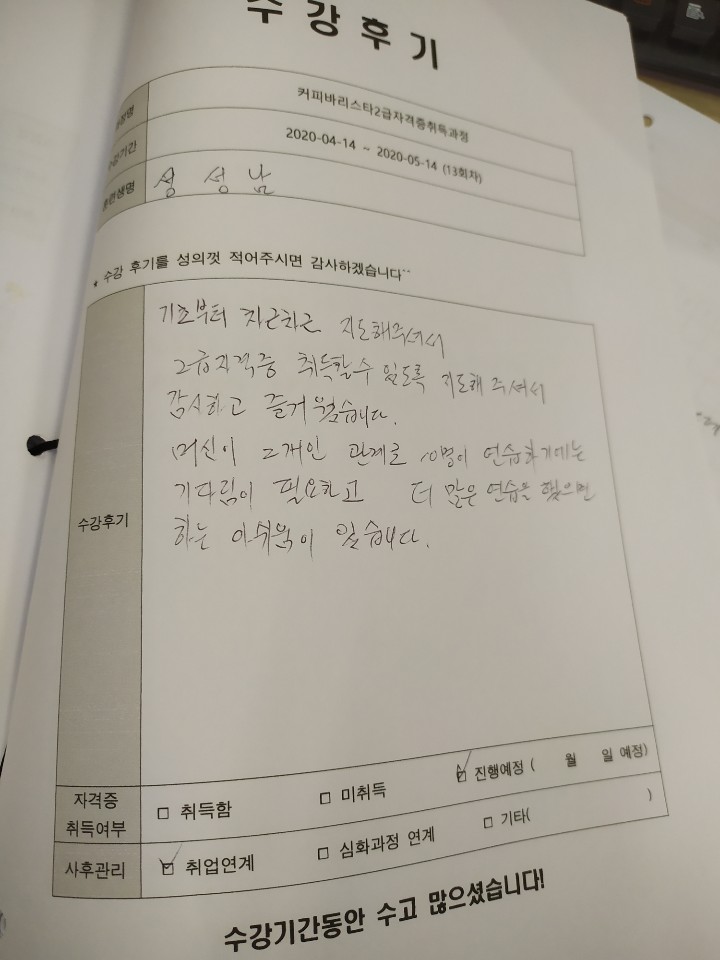 수강후기
과정명
커피바리스타2급자격증취득과정
수강기간
2020-04-14 ~ 2020-05-14 (13회차)
훈련생명
성 성 남
* 수강 후기를 성의껏 적어주시면 감사하겠습니다^^
수강후기
기초부터 차근차근 지도해주셔서
2급자격증 취득할수 있도록 지도해 주셔서
감사하고 즐거웠습니다.
머신이 2개인 관계로 10명이 연습하기에는
기다림이 필요하고 더 많은 연습을 했으면
하는 아쉬움이 있습니다.
자격증
취득여부
□ 취득함 □ 미취득 ☑ 진행예정 ( 월 일 예정)
사후관리
☑ 취업연계 □ 심화과정 연계 □ 기타( )
수강기간동안 수고 많으셨습니다!